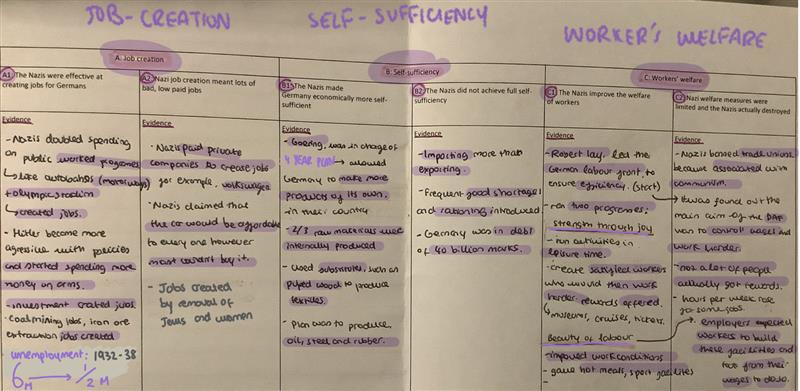 JOB-CREATION
SELF-SUFFICIENCY
WORKER'S WELFARE
A: Job creation
B: Self-sufficiency
C: Workers' welfare
A1 The Nazis were effective at
creating jobs for Germans
Evidence
- Nazis doubled spending
on public worked programes
↳ like autobahns (motorways)
+ olympic stadium
↳ created jobs.
- Hitler become more
agressive with policies
and started spending more
money on arms.
- investment created jobs.
- coalmining jobs, iron ore
extraction jobs created
unemployment: 1932-38
6M → 1/2 M
A2 Nazi job creation meant lots of
bad, low paid jobs
Evidence
· Nazis paid private
companies to crease jobs
for example, volkswagen
· Nazis claimed that
the car would be affordable
to every one however
most couldn't buy it.
- Jobs created
by removal of
Jews and women
B1 The Nazis made
Germany economically more self-
sufficient
Evidence
- Goering, was in charge of
4 YEAR PLAN → allowed
Germany to make more
products of its own.
in their country
- 2/3 raw materials were
internally produced
- used substitutes, such as
pulped wood to produce
textiles.
- plan was to produce
oil, steel and rubber.
B2 The Nazis did not achieve full self-
sufficiency
Evidence
- Importing more than
exporting.
- Frequent good shortages
and rationing introduced
- Germany was in debt
of 40 billion marks.
C1 The Nazis improve the welfare
of workers
Evidence
- Robert lay, led the
German labour grant, to
ensure efficiency. (start)
- ran two programes:
strength through joy
- run activities in
leisure time.
- create satisfied workers
who would then work
harder. rewards offered.
↳ museums, cruises, tickets.
Beauty of labour
- improved work conditions
- gave hot meals, sport facilities
C2 Nazi welfare measures were
limited and the Nazis actually destroyed
Evidence
- Nazis banned trade unions
because associated with
communism.
→ it was found out the
main aim of the DAF
was to control wages and
work harder.
- not a lot of people
actually got rewards.
- hours per week rose
for some jobs.
→ employers expected
workers to build
these facilities and
from their
wages to do so.